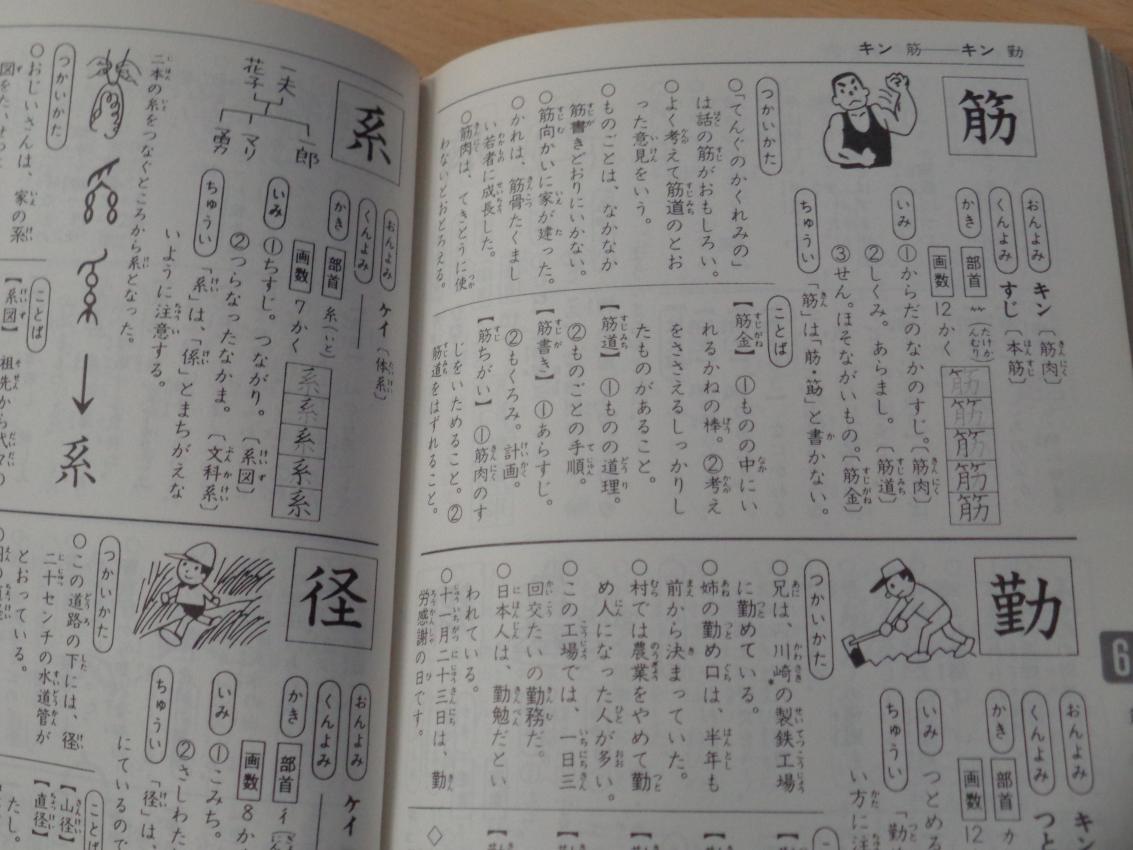 キン 筋──キン 勤
筋
おんよみ キン 〔筋肉〕
くんよみ すじ 〔本筋〕
かき 部首 ⺮(たけかんむり)
画数 12かく
筋筋筋筋筋
いみ ①からだのなかのすじ。〔筋肉〕
②しくみ。あらまし。〔筋道〕
③せん。ほそながいもの。〔筋金〕
ちゅうい 「筋」は「筋・筋」と書かない。
つかいかた
○「てんぐのかくれみの」
は話の筋がおもしろい。
○よく考えて筋道のとお
った意見をいう。
○ものごとは、なかなか
筋書きどおりにいかない。
○筋向かいに家が建った。
○かれは、筋骨たくまし
い若者に成長した。
○筋肉は、てきとうに使
わないとおとろえる。
ことば
【筋金】 ①ものの中にい
れるかねの棒。②考え
をささえるしっかりし
たものがあること。
【筋道】 ①ものの道理。
②ものごとの手順。
【筋書き】 ①あらすじ。
②もくろみ。計画。
【筋ちがい】 ①筋肉のす
じをいためること。②
筋道をはずれること。
勤
おんよみ キン
くんよみ つと
かき 部首 カ
画数 12
いみ つとめる
ちゅうい 「勤
い方に注
つかいかた
○兄は、川崎の製鉄工場
に勤めている。
○姉の勤め口は、半年も
前から決まっていた。
○村では農業をやめて勤
め人になった人が多い。
○この工場では、一日三
回交たいの勤務だ。
○日本人は、勤勉だとい
われている。
○十一月二十三日は、勤
労感謝の日です。
6
系
おんよみ ケイ 〔体系〕
くんよみ ──
かき 部首 糸(いと)
画数 7かく
系系系系系
いみ ①ちすじ。つながり。〔系図〕
②つらなったなかま。〔文科系〕
ちゅうい 「系」は、「係」とまちがえな
いように注意する。
一夫
花子
一郎
マリ
勇
二本の糸をつなぐところから系となった。
系
つかいかた
○おじいさんは、家の系
ことば
【系図】 祖先から代々の
径
おんよみ ケイ
くんよみ
かき 部首 彳
画数 8か
いみ ①こみち。
②さしわた
ちゅうい 「径」は、
にているので
つかいかた
○この道路の下には、径
二十センチの水道管が
とおっている。
ことば
【山径】
【直径】
たし。